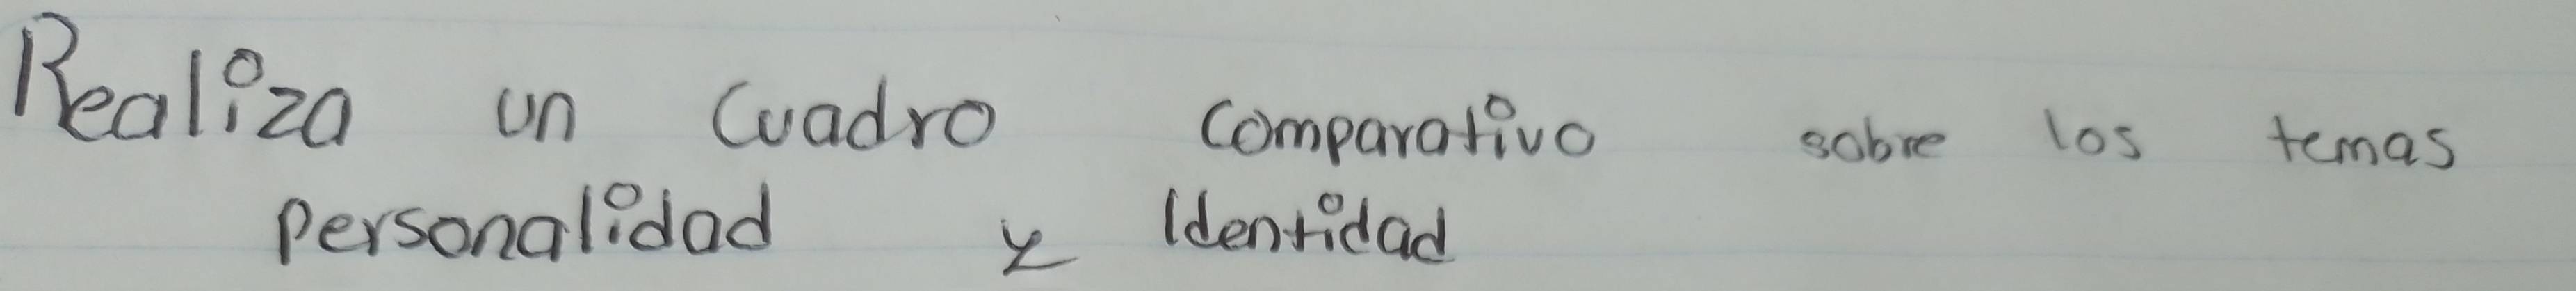 Realiza un Cuadro Comparativo sobre los temas
personalidad y Identidad